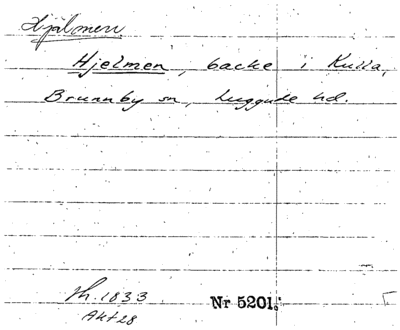 Hjälmen
Hjelmen, backe i Kulla,
Brunnby sn, Luggude hd.
Th. 1833
Akt 28
Nr 5201.